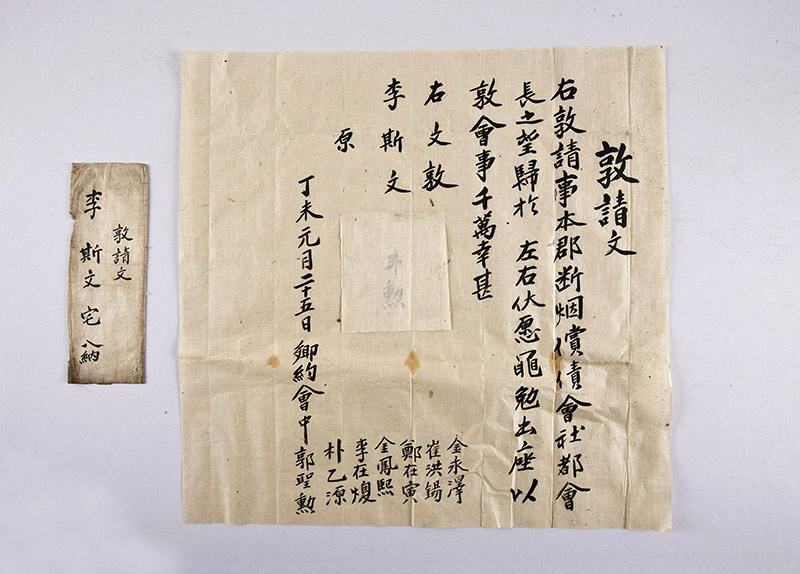 敦請文
右敦請事本郡断烟償債會社都會
長之望歸於 左右伏愿黽勉出座以
敦會事千萬幸甚
右文敦
李斯文
原
丁未元月二十五日 鄉約會中 郭聖勲
金永澤
崔洪錫
鄭在寅
金鳳熙
李在馥
朴乙源
敦請文
李斯文宅 入納